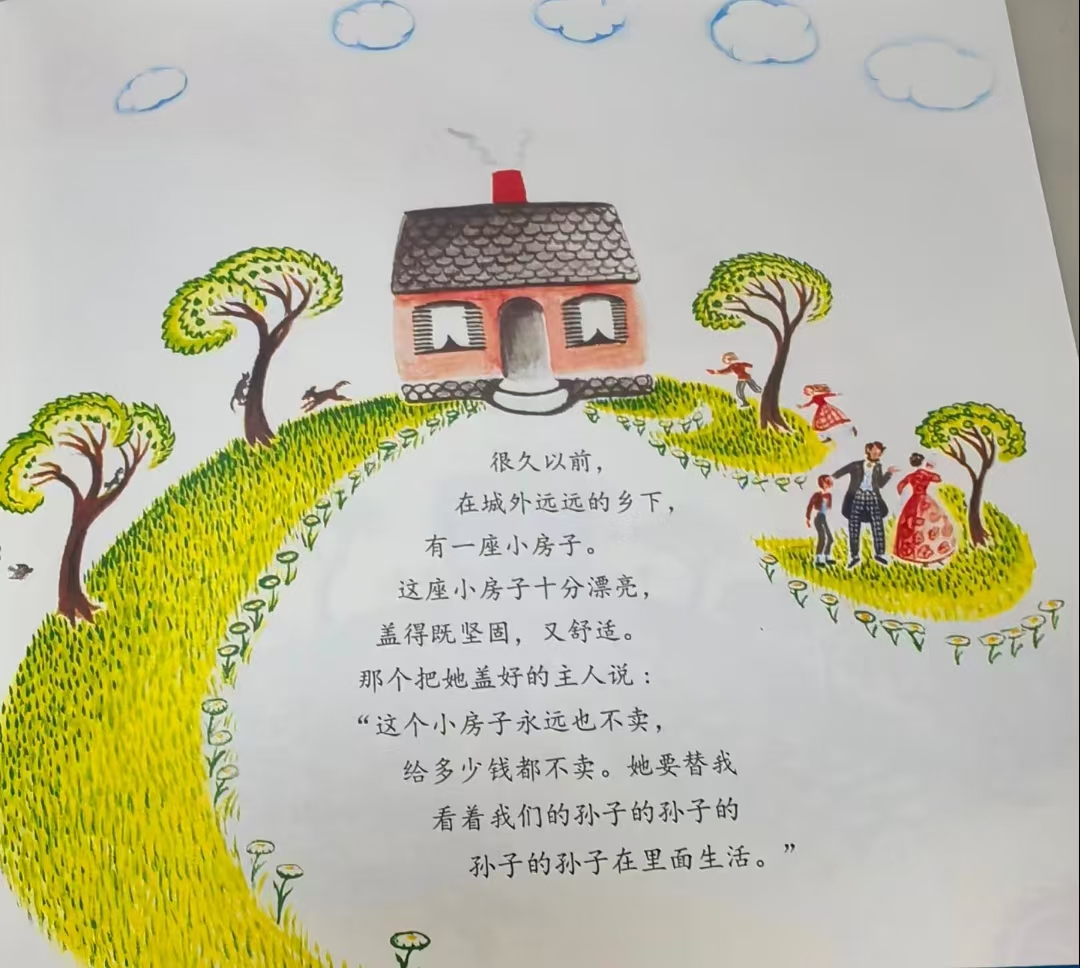 很久以前，
在城外远远的乡下，
有一座小房子。
这座小房子十分漂亮，
盖得既坚固，又舒适。
那个把她盖好的主人说：
“这个小房子永远也不卖，
给多少钱都不卖。她要替我
看着我们的孙子的孙子的
孙子的孙子在里面生活。”